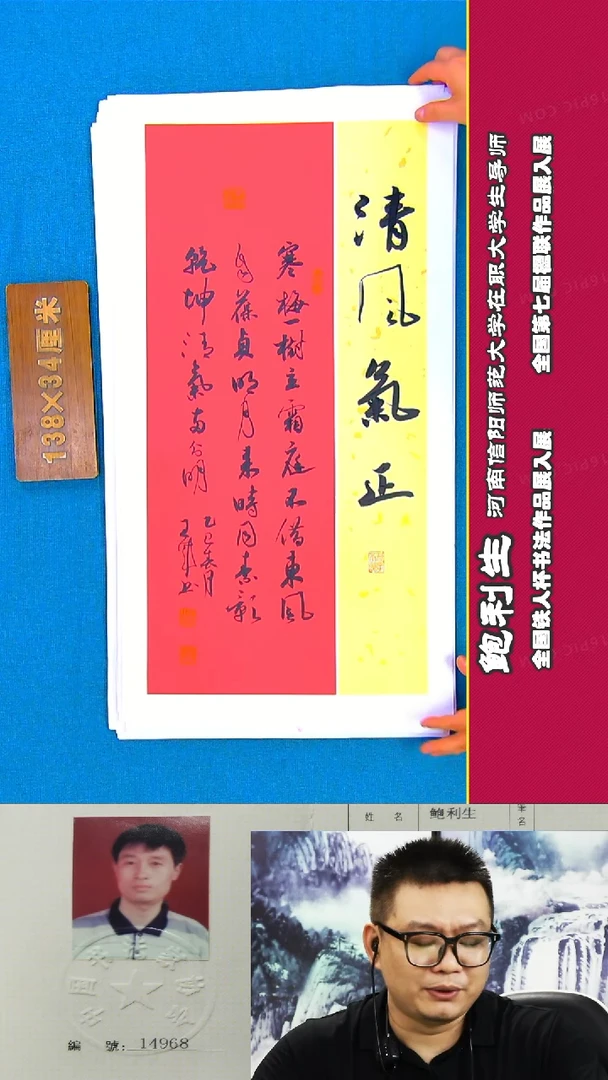 清风氣正
寒梅一樹立霜庭不借東風
自葆貞明月來時同素影
乾坤清氣
乙巳春月
138×34厘米
鲍利生 河南信阳师范大学在职大学生导师
全国铁人杯书法作品展入展 全国第七届楹联作品展入展
姓名 鲍利生
筆名
編號：14968